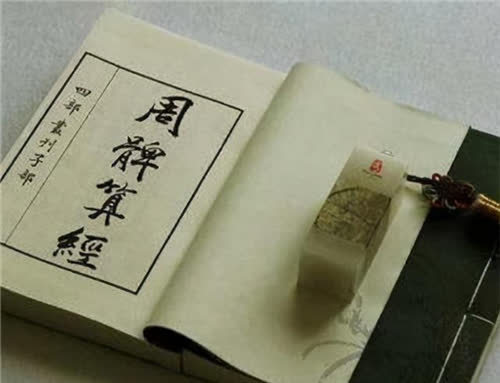 周髀算經
四部叢刊子部